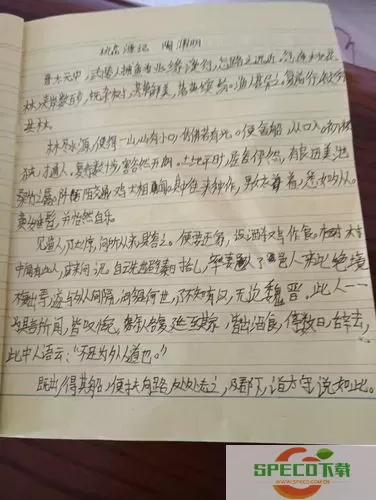 桃花源记 陶渊明
晋太元中,武陵人捕鱼为业,缘溪行,忘路之远近,忽逢桃花
林,夹岸数百步,中无杂树,芳草鲜美,落英缤纷。渔人甚异之,复前行,欲穷
其林。
林尽水源,便得一山,山有小口,仿佛若有光。便舍船,从口入。初极
狭,才通人,复行数十步,豁然开朗。土地平旷,屋舍俨然,有良田美池
桑竹之属,阡陌交通,鸡犬相闻。其中往来种作,男女衣着,悉如外人。
黄发垂髫,并怡然自乐
见渔人,乃大惊,问所从来,具答之。便要还家,设酒杀鸡作食。村
中闻有此人,咸来问讯。自云先世避秦时乱,率妻 邑人来此绝境
不复出焉,遂与外人间隔,问今何世,乃不知有汉,无论魏晋。此人一一
为具言所闻,皆叹惋。余人各复延至其家,皆出酒食,停数日,辞去,
此中人语云:“不足为外人道也。”
既出,得其船,便扶向路,处处志之,及郡下,诣太守,说如此。
SPECO下载
WWW.SPECO.COM.CN